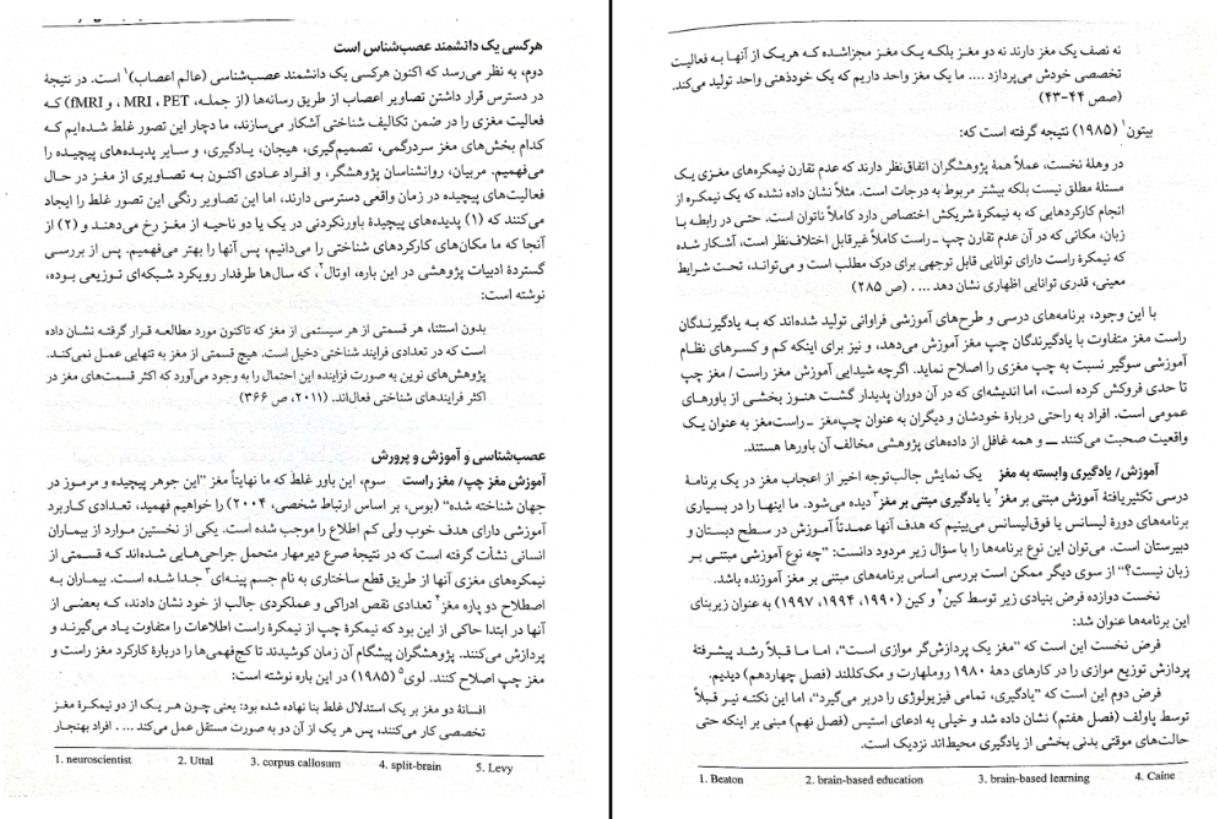 هرکسی یک دانشمند عصب‌شناس است
دوم، به نظر می‌رسد که اکنون هرکسی یک دانشمند عصب‌شناسی (عالم اعصاب)۱ است. در نتیجهٔ
در دسترس قرار داشتن تصاویر اعصاب از طریق رسانه‌ها (از جمله، MRI ، PET ، و fMRI) که
فعالیت مغزی را در ضمن تکالیف شناختی آشکار می‌سازند، ما دچار این تصور غلط شده‌ایم که
کدام بخش‌های مغز سردرگمی، تصمیم‌گیری، هیجان، یادگیری، و سایر پدیده‌های پیچیده را
می‌فهمیم. مربیان، روانشناسان پژوهشگر، و افراد عادی اکنون به تصاویری از مغز در حال
فعالیت‌های پیچیده در زمان واقعی دسترسی دارند، اما این تصاویر رنگی این تصور غلط را ایجاد
می‌کنند که (۱) پدیده‌های پیچیدهٔ باورنکردنی در یک یا دو ناحیه از مغز رخ می‌دهند و (۲) از
آنجا که ما مکان‌های کارکردهای شناختی را می‌دانیم، پس آنها را بهتر می‌فهمیم. پس از بررسی
گستردهٔ ادبیات پژوهشی در این باره، اوتال۲، که سال‌ها طرفدار رویکرد شبکه‌ای توزیعی بوده،
نوشته است:
بدون استثنا، هر قسمتی از هر سیستمی از مغز که تاکنون مورد مطالعه قرار گرفته نشان داده
است که در تعدادی فرایند شناختی دخیل است. هیچ قسمتی از مغز به تنهایی عمل نمی‌کند.
پژوهش‌های نوین به صورت فزاینده این احتمال را به وجود می‌آورد که اکثر قسمت‌های مغز در
اکثر فرایندهای شناختی فعال‌اند. (۲۰۱۱، ص ۳۶۶)
عصب‌شناسی و آموزش و پرورش
آموزش مغز چپ/ مغز راست سوم، این باور غلط که ما نهایتاً مغز "این جوهر پیچیده و مرموز در
جهان شناخته شده" (بوس، بر اساس ارتباط شخصی، ۲۰۰۴) را خواهیم فهمید، تعدادی کاربرد
آموزشی دارای هدف خوب ولی کم اطلاع را موجب شده است. یکی از نخستین موارد از بیماران
انسانی نشأت گرفته است که در نتیجهٔ صرع دیرمهار متحمل جراحی‌هایی شده‌اند که قسمتی از
نیمکره‌های مغزی آنها از طریق قطع ساختاری به نام جسم پینه‌ای۳ جدا شده است. بیماران به
اصطلاح دو پاره مغز۴ تعدادی نقص ادراکی و عملکردی جالب از خود نشان دادند، که بعضی از
آنها در ابتدا حاکی از این بود که نیمکرهٔ چپ از نیمکرهٔ راست اطلاعات را متفاوت یاد می‌گیرند و
پردازش می‌کنند. پژوهشگران پیشگام آن زمان کوشیدند تا کج‌فهمی‌ها را دربارهٔ کارکرد مغز راست و
مغز چپ اصلاح کنند. لوی۵ (۱۹۸۵) در این باره نوشته است:
افسانهٔ دو مغز بر یک استدلال غلط بنا نهاده شده بود: یعنی چون هر یک از دو نیمکرهٔ مغز
تخصصی کار می‌کنند، پس هر یک از آن دو به صورت مستقل عمل می‌کند ... . افراد بهنجار
1. neuroscientist 2. Uttal 3. corpus callosum 4. split-brain 5. Levy
نه نصف یک مغز دارند نه دو مغز بلکه یک مغز مجزاشده که هریک از آنها به فعالیت
تخصصی خودش می‌پردازد .... ما یک مغز واحد داریم که یک خودذهنی واحد تولید می‌کند.
(صص ۴۴-۴۳)
بیتون۱ (۱۹۸۵) نتیجه گرفته است که:
در وهلهٔ نخست، عملاً همهٔ پژوهشگران اتفاق‌نظر دارند که عدم تقارن نیمکره‌های مغزی یک
مسئلهٔ مطلق نیست بلکه بیشتر مربوط به درجات است. مثلاً نشان داده نشده که یک نیمکره از
انجام کارکردهایی که به نیمکرهٔ شریکش اختصاص دارد کاملاً ناتوان است. حتی در رابطه با
زبان، مکانی که در آن عدم تقارن چپ ـ راست کاملاً غیرقابل اختلاف‌نظر است، آشکار شده
که نیمکرهٔ راست دارای توانایی قابل توجهی برای درک مطلب است و می‌تواند، تحت شرایط
معینی، قدری توانایی اظهاری نشان دهد ... . (ص ۲۸۵)
با این وجود، برنامه‌های درسی و طرح‌های آموزشی فراوانی تولید شده‌اند که به یادگیرندگان
راست مغز متفاوت با یادگیرندگان چپ مغز آموزش می‌دهد، و نیز برای اینکه کم و کسرهای نظام
آموزشی سوگیر نسبت به چپ مغزی را اصلاح نماید. اگرچه شیدایی آموزش مغز راست / مغز چپ
تا حدی فروکش کرده است، اما اندیشه‌ای که در آن دوران پدیدار گشت هنوز بخشی از باورهای
عمومی است. افراد به راحتی دربارهٔ خودشان و دیگران به عنوان چپ‌مغز ـ راست‌مغز به عنوان یک
واقعیت صحبت می‌کنند ــ و همه غافل از داده‌های پژوهشی مخالف آن باورها هستند.
آموزش/ یادگیری وابسته به مغز یک نمایش جالب‌توجه اخیر از اعجاب مغز در یک برنامهٔ
درسی تکثیریافتهٔ آموزش مبتنی بر مغز۲ یا یادگیری مبتنی بر مغز۳ دیده می‌شود. ما اینها را در بسیاری
برنامه‌های دورهٔ لیسانس یا فوق‌لیسانس می‌بینیم که هدف آنها عمدتاً آموزش در سطح دبستان و
دبیرستان است. می‌توان این نوع برنامه‌ها را با سؤال زیر مردود دانست: "چه نوع آموزشی مبتنی بر
زبان نیست؟" از سوی دیگر ممکن است بررسی اساس برنامه‌های مبتنی بر مغز آموزنده باشد.
نخست دوازده فرض بنیادی زیر توسط کین۴ و کین (۱۹۹۰، ۱۹۹۴، ۱۹۹۷) به عنوان زیربنای
این برنامه‌ها عنوان شد:
فرض نخست این است که "مغز یک پردازش‌گر موازی است"، اما ما قبلاً رشد پیشرفتهٔ
پردازش توزیع موازی را در کارهای دههٔ ۱۹۸۰ روملهارت و مک‌کللند (فصل چهاردهم) دیدیم.
فرض دوم این است که "یادگیری، تمامی فیزیولوژی را دربر می‌گیرد"، اما این نکته نیر قبلاً
توسط پاولف (فصل هفتم) نشان داده شد و خیلی به ادعای استیس (فصل نهم) مبنی بر اینکه حتی
حالت‌های موقتی بدنی بخشی از یادگیری محیط‌اند نزدیک است.
1. Beaton 2. brain-based education 3. brain-based learning 4. Caine